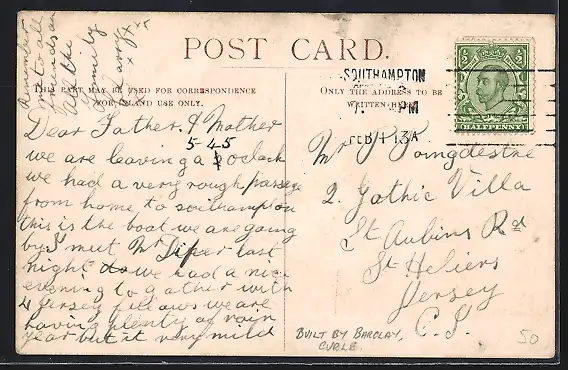 Remember
me to all
friends an
all the
family
Harry x x x x
POST CARD.
THIS PART MAY BE USED FOR CORRESPONDENCE
FOR INLAND USE ONLY.
ONLY THE ADDRESS TO BE
WRITTEN
SOUTHAMPTON
PM
FEB 1 13A
HALFPENNY
Dear Father & Mother
5-45
we are leaving a oclock
we had a very rough passage
from home to southampton
this is the boat we are going
by I meet Mr last
night we had a nice
evening to gather with
4 Jersey fellows we are
having plenty of rain
year but at very mild
Mr P Poingdestre
2. Gothic Villa
St Aubins Rd
St Heliers
Jersey
C. I.
BUILT BY BARCLAY,
CURLE.
50